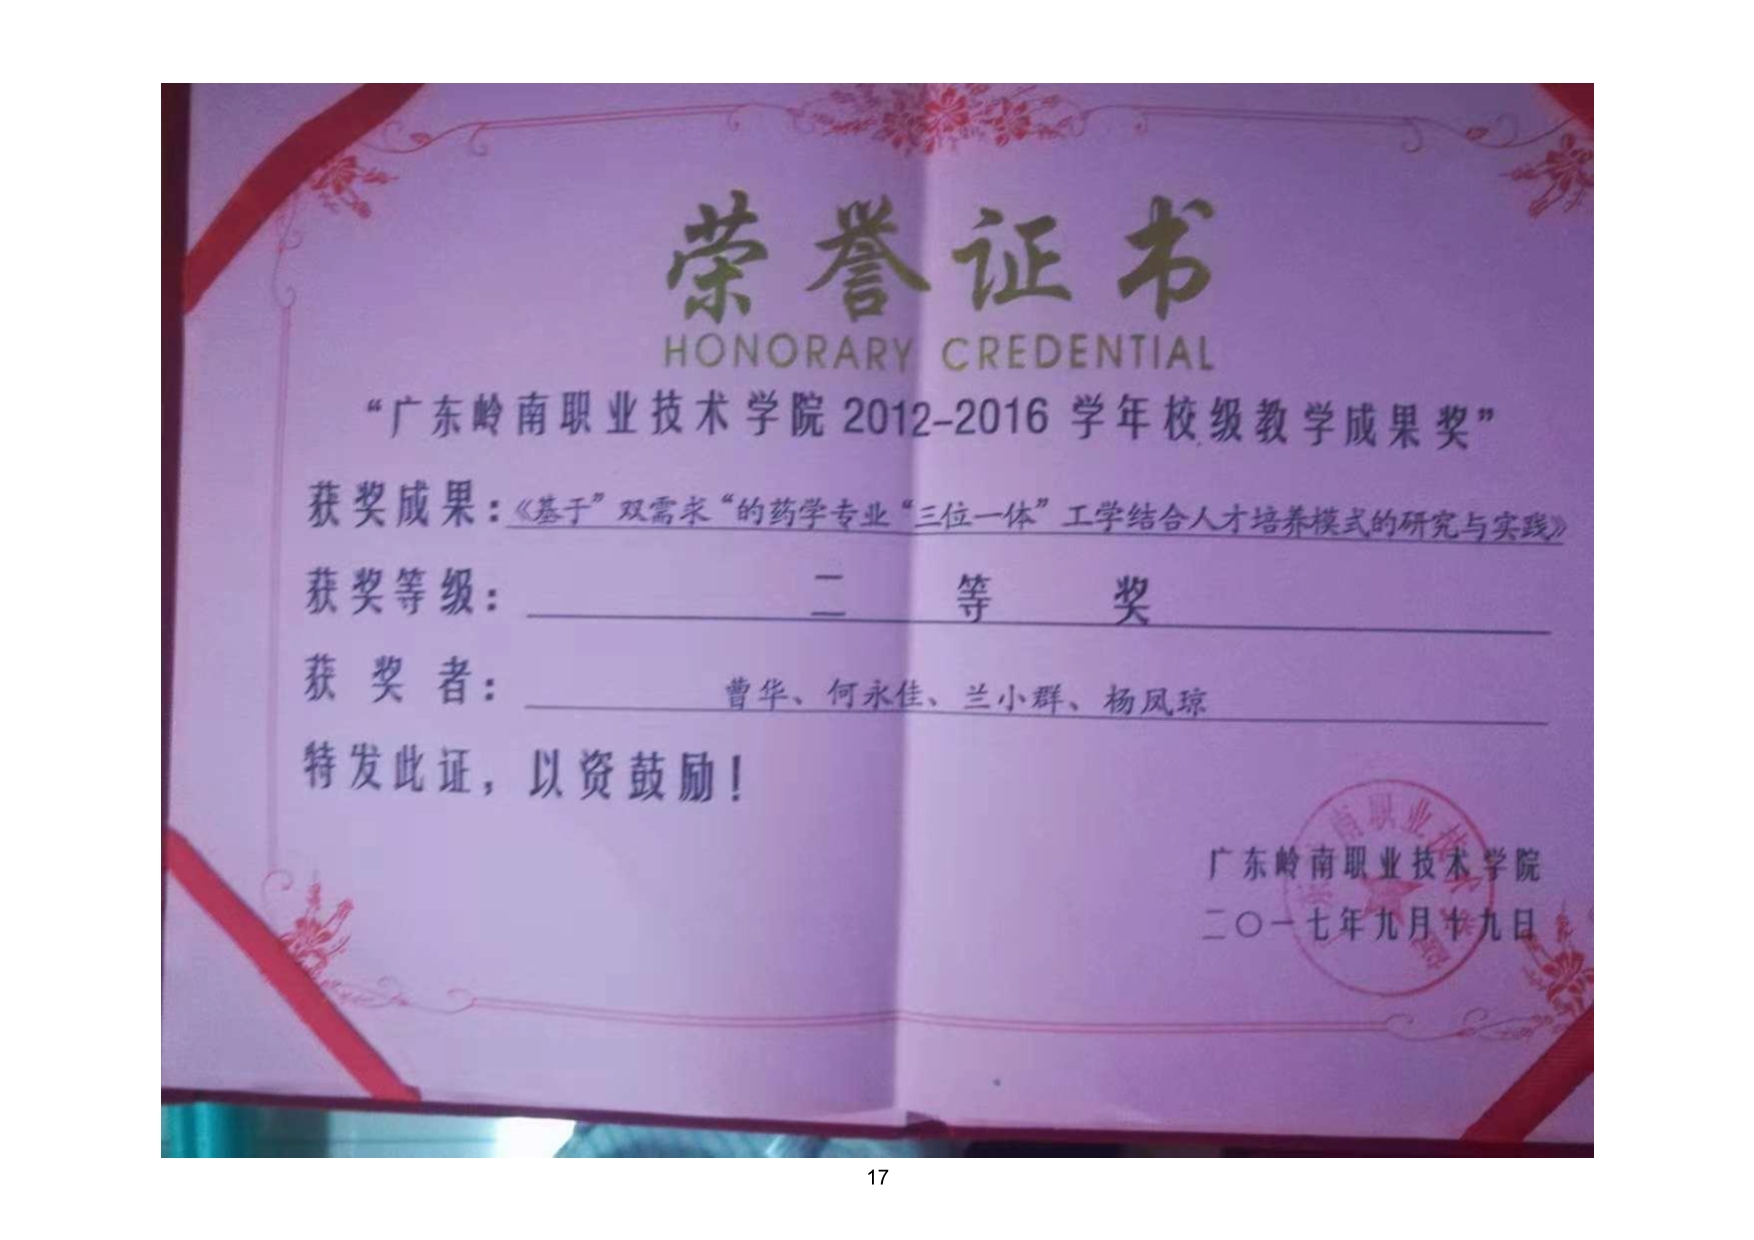 荣誉证书
HONORARY CREDENTIAL
“广东岭南职业技术学院2012-2016学年校级教学成果奖”
获奖成果：《基于”双需求“的药学专业“三位一体”工学结合人才培养模式的研究与实践》
获奖等级：二等奖
获奖者：曹华、何永佳、兰小群、杨凤琼
特发此证，以资鼓励！
广东岭南职业技术学院
二〇一七年九月十九日
17